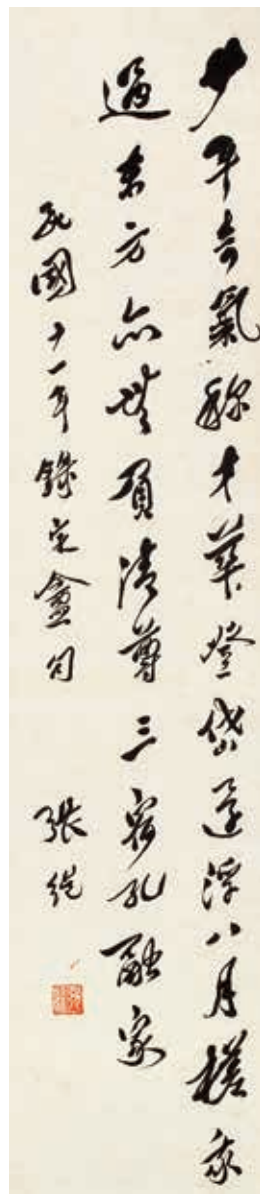 少年奇氣称才華登岱還浮八月槎我
過東方亦無負清尊三宿孔融家
民國十一年錄定盦句 張継